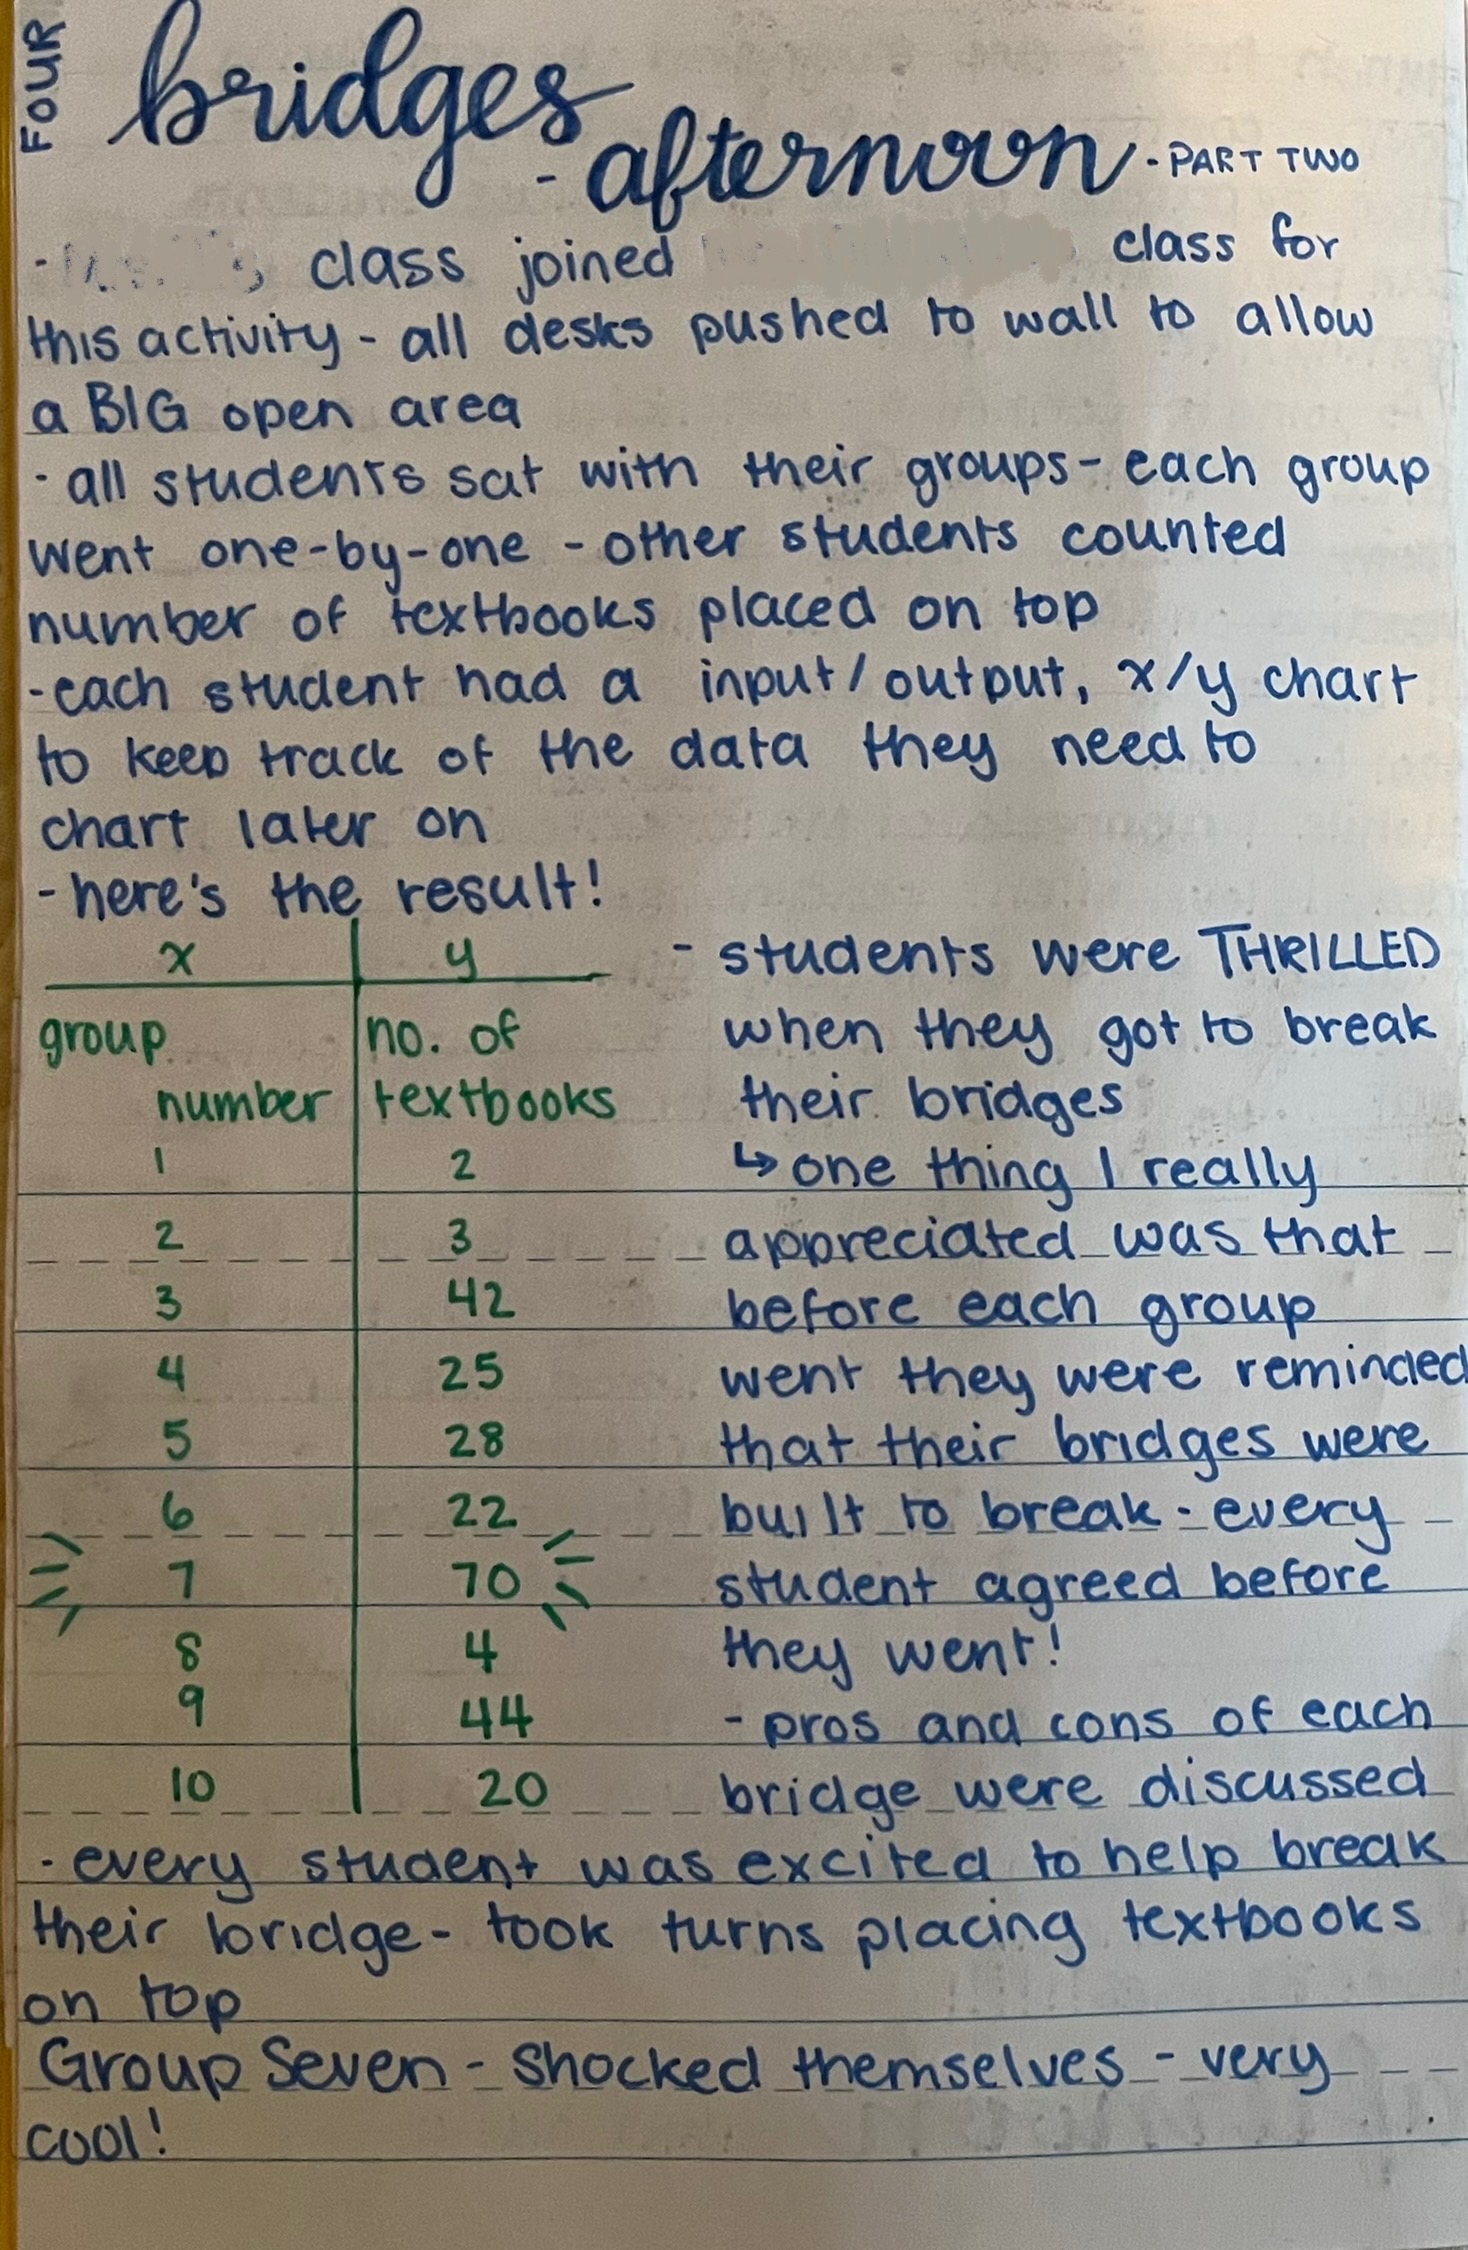 FOUR
bridges
- afternoon - PART TWO
- class joined class for
this activity - all desks pushed to wall to allow
a BIG open area
- all students sat with their groups - each group
went one-by-one - other students counted
number of textbooks placed on top
- each student had a input/output, x/y chart
to keep track of the data they need to
chart later on
- here's the result!
x y
group no. of
number textbooks
1 2
2 3
3 42
4 25
5 28
6 22
7 70
8 4
9 44
10 20
- students were THRILLED
when they got to break
their bridges
↳ one thing I really
appreciated was that
before each group
went they were reminded
that their bridges were
built to break - every
student agreed before
they went!
- pros and cons of each
bridge were discussed
- every student was excited to help break
their bridge - took turns placing textbooks
on top
Group Seven - shocked themselves - very
cool!